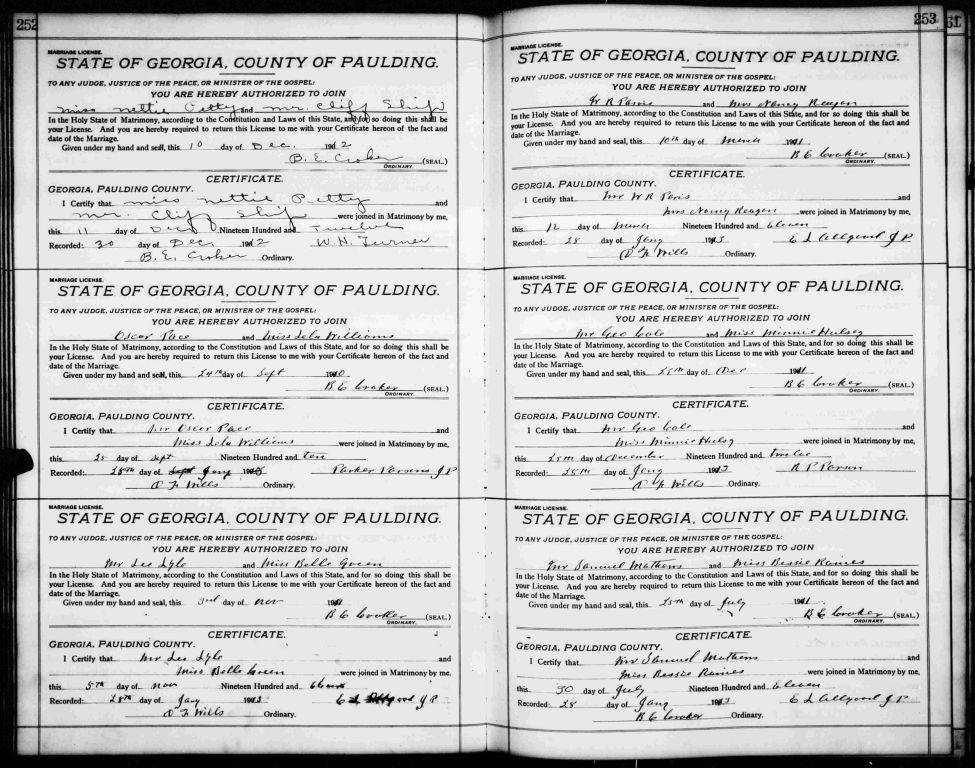 252
MARRIAGE LICENSE.
STATE OF GEORGIA, COUNTY OF PAULDING.
TO ANY JUDGE, JUSTICE OF THE PEACE, OR MINISTER OF THE GOSPEL:
YOU ARE HEREBY AUTHORIZED TO JOIN
miss nettie Petty and mr. Cliff Ship
In the Holy State of Matrimony, according to the Constitution and Laws of this State, and for so doing this shall be
your License. And you are hereby required to return this License to me with your Certificate hereon of the fact and
date of the Marriage.
Given under my hand and seal, this 10 day of Dec. 1912
B. E. Croker (SEAL.)
ORDINARY.
CERTIFICATE.
GEORGIA, PAULDING COUNTY.
I Certify that miss nettie Petty and
mr. Cliff Ship were joined in Matrimony by me,
this 11 day of Dec Nineteen Hundred and Twelve
Recorded: 30 day of Dec. 1912 W. H. Turner
B. E. Croker Ordinary.
MARRIAGE LICENSE.
STATE OF GEORGIA, COUNTY OF PAULDING.
TO ANY JUDGE, JUSTICE OF THE PEACE, OR MINISTER OF THE GOSPEL:
YOU ARE HEREBY AUTHORIZED TO JOIN
Oscar Pace and Miss Lela Williams
In the Holy State of Matrimony, according to the Constitution and Laws of this State, and for so doing this shall be
your License. And you are hereby required to return this License to me with your Certificate hereon of the fact and
date of the Marriage.
Given under my hand and seal, this 24th day of Sept 1910.
B C Croker (SEAL.)
ORDINARY.
CERTIFICATE.
GEORGIA, PAULDING COUNTY.
I Certify that Mr Oscar Pace and
Miss Lela Williams were joined in Matrimony by me,
this 25 day of Sept Nineteen Hundred and ten
Recorded: 28th day of Jany Parker Parsons J P
O F Wills Ordinary.
MARRIAGE LICENSE.
STATE OF GEORGIA, COUNTY OF PAULDING.
TO ANY JUDGE, JUSTICE OF THE PEACE, OR MINISTER OF THE GOSPEL:
YOU ARE HEREBY AUTHORIZED TO JOIN
Mr Leo Lyle and Miss Belle Green
In the Holy State of Matrimony, according to the Constitution and Laws of this State, and for so doing this shall be
your License. And you are hereby required to return this License to me with your Certificate hereon of the fact and
date of the Marriage.
Given under my hand and seal, this 3rd day of Nov 1911
B C Croker (SEAL.)
ORDINARY.
CERTIFICATE.
GEORGIA, PAULDING COUNTY.
I Certify that Mr Leo Lyle and
Miss Belle Green were joined in Matrimony by me,
this 5th day of Nov Nineteen Hundred and Eleven
Recorded: 28th day of Jany 1913 J P
O F Wills Ordinary.
253
MARRIAGE LICENSE.
STATE OF GEORGIA, COUNTY OF PAULDING.
TO ANY JUDGE, JUSTICE OF THE PEACE, OR MINISTER OF THE GOSPEL:
YOU ARE HEREBY AUTHORIZED TO JOIN
W R Paris and Mrs Nancy Reagen
In the Holy State of Matrimony, according to the Constitution and Laws of this State, and for so doing this shall be
your License. And you are hereby required to return this License to me with your Certificate hereon of the fact and
date of the Marriage.
Given under my hand and seal, this 10th day of March 1911.
B C Croker (SEAL.)
ORDINARY.
CERTIFICATE.
GEORGIA, PAULDING COUNTY.
I Certify that Mr W R Paris and
Mrs Nancy Reagen were joined in Matrimony by me,
this 12 day of March Nineteen Hundred and Eleven
Recorded: 28 day of Jany 1913 E L Allgood J P
O F Wills Ordinary.
MARRIAGE LICENSE.
STATE OF GEORGIA, COUNTY OF PAULDING.
TO ANY JUDGE, JUSTICE OF THE PEACE, OR MINISTER OF THE GOSPEL:
YOU ARE HEREBY AUTHORIZED TO JOIN
Mr Geo Cole and Miss Minnie Hulsey
In the Holy State of Matrimony, according to the Constitution and Laws of this State, and for so doing this shall be
your License. And you are hereby required to return this License to me with your Certificate hereon of the fact and
date of the Marriage.
Given under my hand and seal, this 28th day of Dec 1911.
B C Croker (SEAL.)
ORDINARY.
CERTIFICATE.
GEORGIA, PAULDING COUNTY.
I Certify that Mr Geo Cole and
Miss Minnie Hulsy were joined in Matrimony by me,
this 28th day of December Nineteen Hundred and Twelve
Recorded: 28th day of Jany 1913 R P Parson
O F Wills Ordinary.
MARRIAGE LICENSE.
STATE OF GEORGIA, COUNTY OF PAULDING.
TO ANY JUDGE, JUSTICE OF THE PEACE, OR MINISTER OF THE GOSPEL:
YOU ARE HEREBY AUTHORIZED TO JOIN
Mr Samuel Mathens and Miss Bessie Raines
In the Holy State of Matrimony, according to the Constitution and Laws of this State, and for so doing this shall be
your License. And you are hereby required to return this License to me with your Certificate hereon of the fact and
date of the Marriage.
Given under my hand and seal, this 25th day of July 1911.
B C Croker (SEAL.)
ORDINARY.
CERTIFICATE.
GEORGIA, PAULDING COUNTY.
I Certify that Mr Samuel Mathens and
Miss Bessie Raines were joined in Matrimony by me,
this 30 day of July Nineteen Hundred and Eleven
Recorded: 28 day of Jany 1913 E L Allgood J P
B C Croker Ordinary.